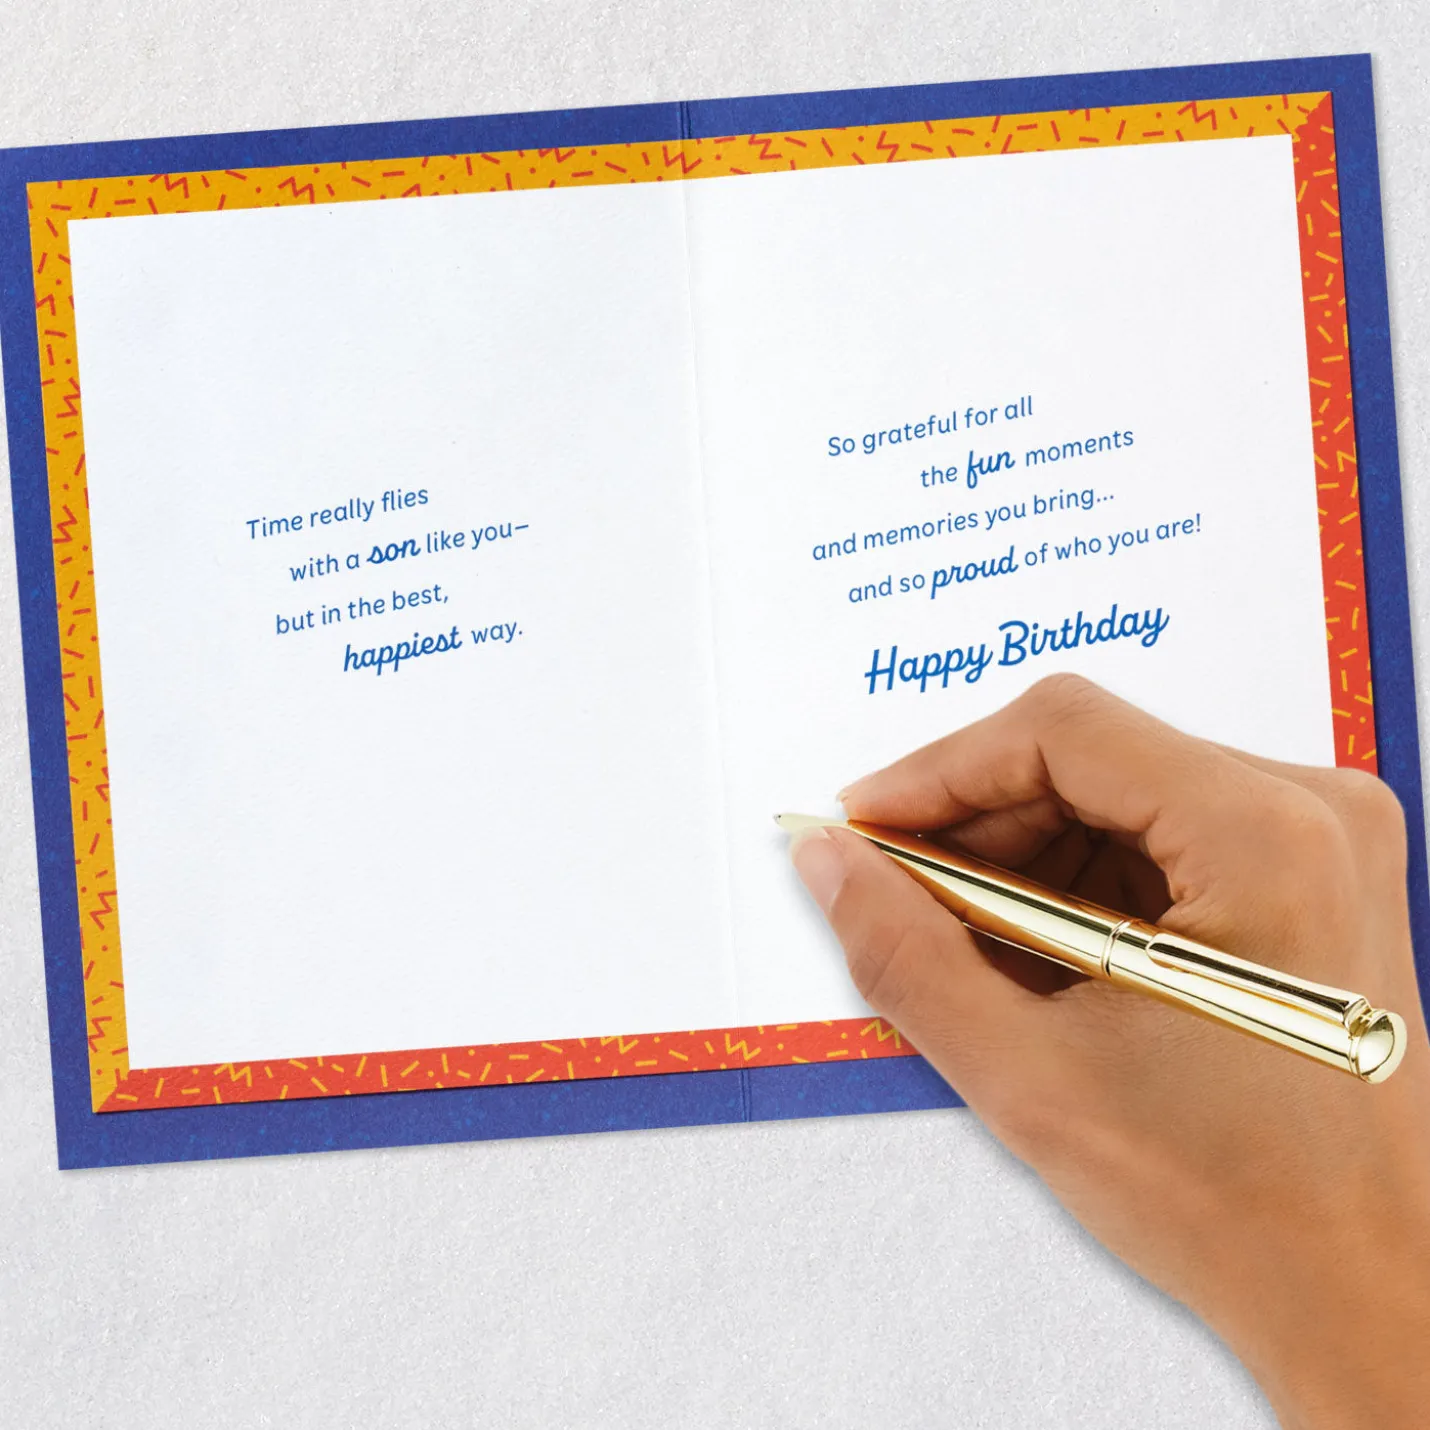 Time really flies
with a son like you–
but in the best,
happiest way.
So grateful for all
the fun moments
and memories you bring...
and so proud of who you are!
Happy Birthday